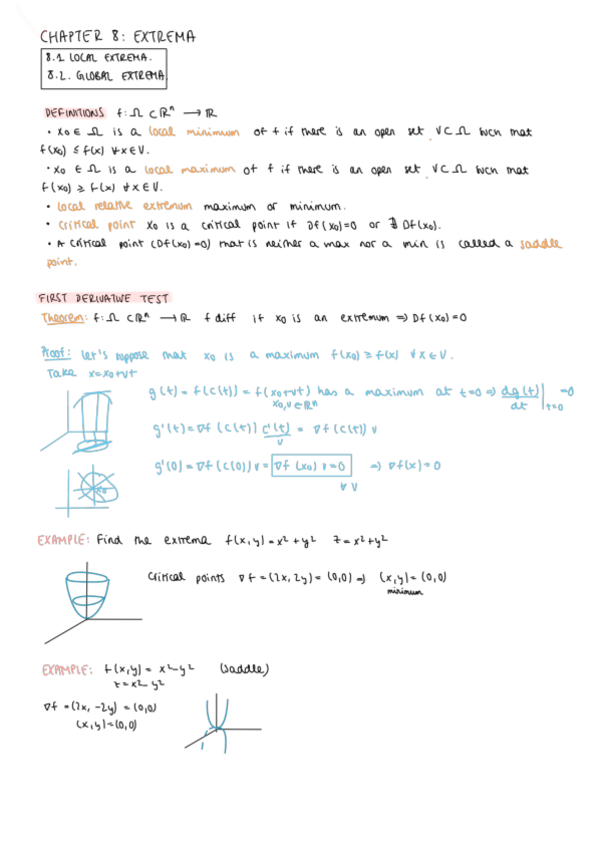 CHAPTER 8: EXTREMA
8.1 LOCAL EXTREMA.
8.2. GLOBAL EXTREMA
DEFINITIONS f: Ω ⊂ ℝⁿ → ℝ
• x0 ∈ Ω is a local minimum of f if there is an open set V ⊂ Ω such that
f(x0) ≤ f(x) ∀x ∈ V.
• x0 ∈ Ω is a local maximum of f if there is an open set V ⊂ Ω such that
f(x0) ≥ f(x) ∀x ∈ V.
• local relative extremum maximum or minimum.
• Critical point x0 is a critical point if Df(x0)=0 or ∄ Df(x0).
• A critical point (Df(x0)=0) that is neither a max nor a min is called a saddle
point.
FIRST DERIVATIVE TEST
Theorem: f: Ω ⊂ ℝⁿ → ℝ f diff if x0 is an extremum ⇒ Df(x0)=0
Proof: Let's suppose that x0 is a maximum f(x0) ≥ f(x) ∀x ∈ V.
Take x=x0+vt
g(t) = f(c(t)) = f(x0+vt) has a maximum at t=0 ⇒ dg(t)/dt |t=0 =0
x0,v ∈ ℝⁿ
g'(t) = ∇f (c(t)) c'(t) = ∇f (c(t)) v
v
g'(0) = ∇f (c(0)) v = ∇f (x0) v = 0 ⇒ ∇f(x) = 0
∀ v
x0
EXAMPLE: Find the extrema f(x,y) = x² + y² z = x² + y²
Critical points ∇f = (2x, 2y) = (0,0) ⇒ (x,y) = (0,0)
minimum
EXAMPLE: f(x,y) = x² - y² (saddle)
z = x² - y²
∇f = (2x, -2y) = (0,0)
(x,y) = (0,0)